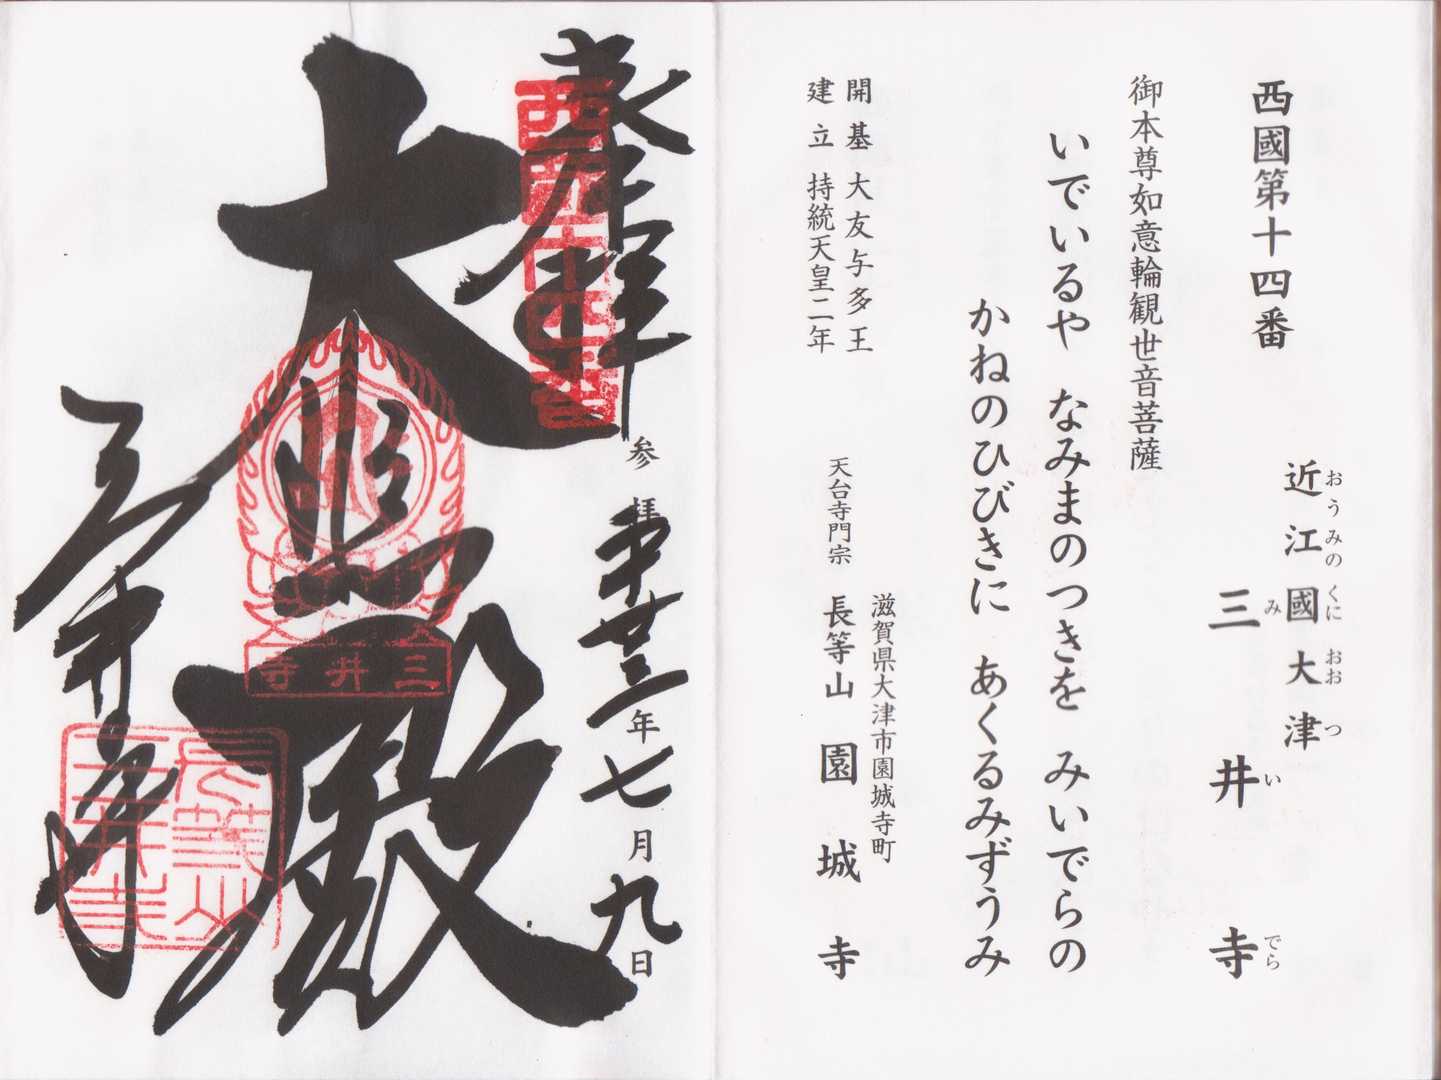 西國第十四番
近江國大津
おうみのくにおおつ
三井寺
みいでら
御本尊如意輪観世音菩薩
いでいるや なみまのつきを みいでらの
かねのひびきに あくるみずうみ
開基 大友与多王
建立 持統天皇二年
滋賀県大津市園城寺町
天台寺門宗 長等山 園城寺
奉拝
西國十四番
参拝 平廿三年七月九日
大悲殿
三井寺
三井寺
長等山
三井寺